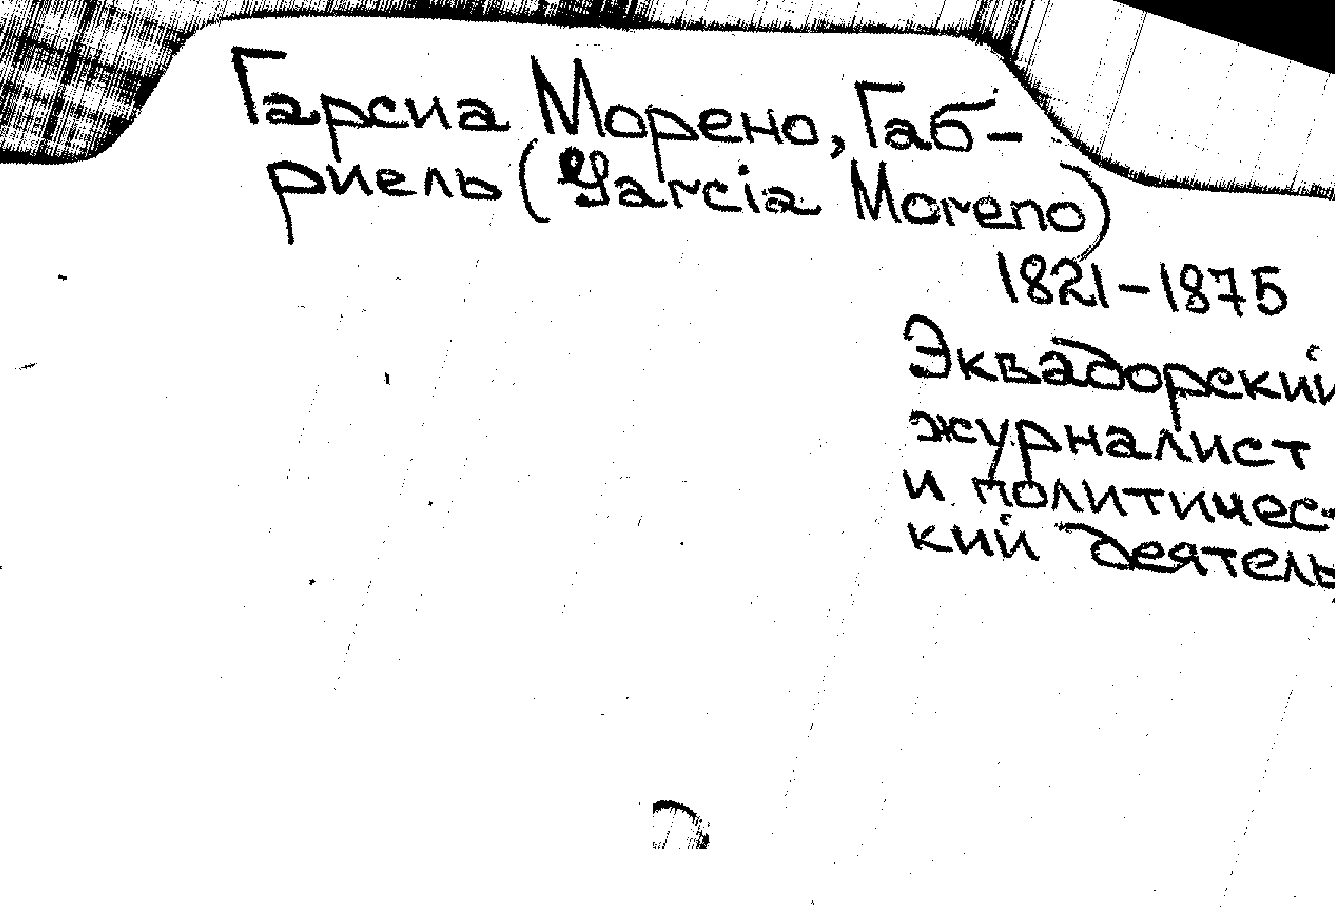 Гарсиа Морено, Габ-
риель (Garcia Moreno)
1821-1875
Эквадорский
журналист
и политичес-
кий деятель